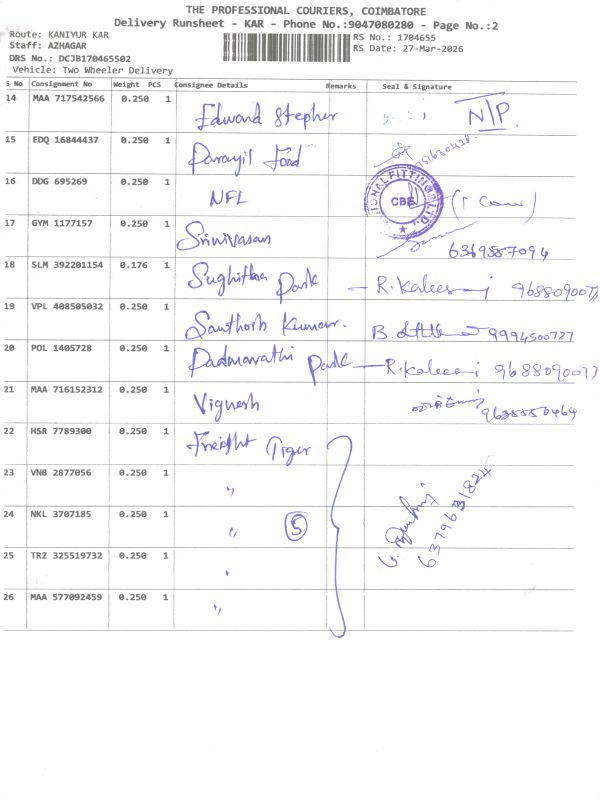 THE PROFESSIONAL COURIERS, COIMBATORE
Delivery Runsheet - KAR - Phone No.:9047080280 - Page No.:2
Route: KANIYUR KAR
Staff: AZHAGAR
DRS No.: DCJB170465502
Vehicle: Two Wheeler Delivery
RS No.: 1704655
RS Date: 27-Mar-2026
S No Consignment No Weight PCS Consignee Details Remarks Seal & Signature
14 MAA 717542566 0.250 1 Edward Stepher N/P
15 EDQ 16844437 0.250 1 Parayil Food
16 DDG 695269 0.250 1 NFL CBE
17 GYM 1177157 0.250 1 Srinivasan 6369587094
18 SLM 392201154 0.176 1 Sughitha Park - R. Kalees
19 VPL 408505032 0.250 1 Santhosh Kumar. B. 9994500727
20 POL 1405728 0.250 1 Padmavathi Park - R. Kalees
21 MAA 716152312 0.250 1 Vignesh
22 HSR 7789300 0.250 1 Freight Tiger
23 VNB 2877056 0.250 1 〃
24 NKL 3707185 0.250 1 〃 5
6379631824
25 TRZ 325519732 0.250 1 〃
26 MAA 577092459 0.250 1 〃